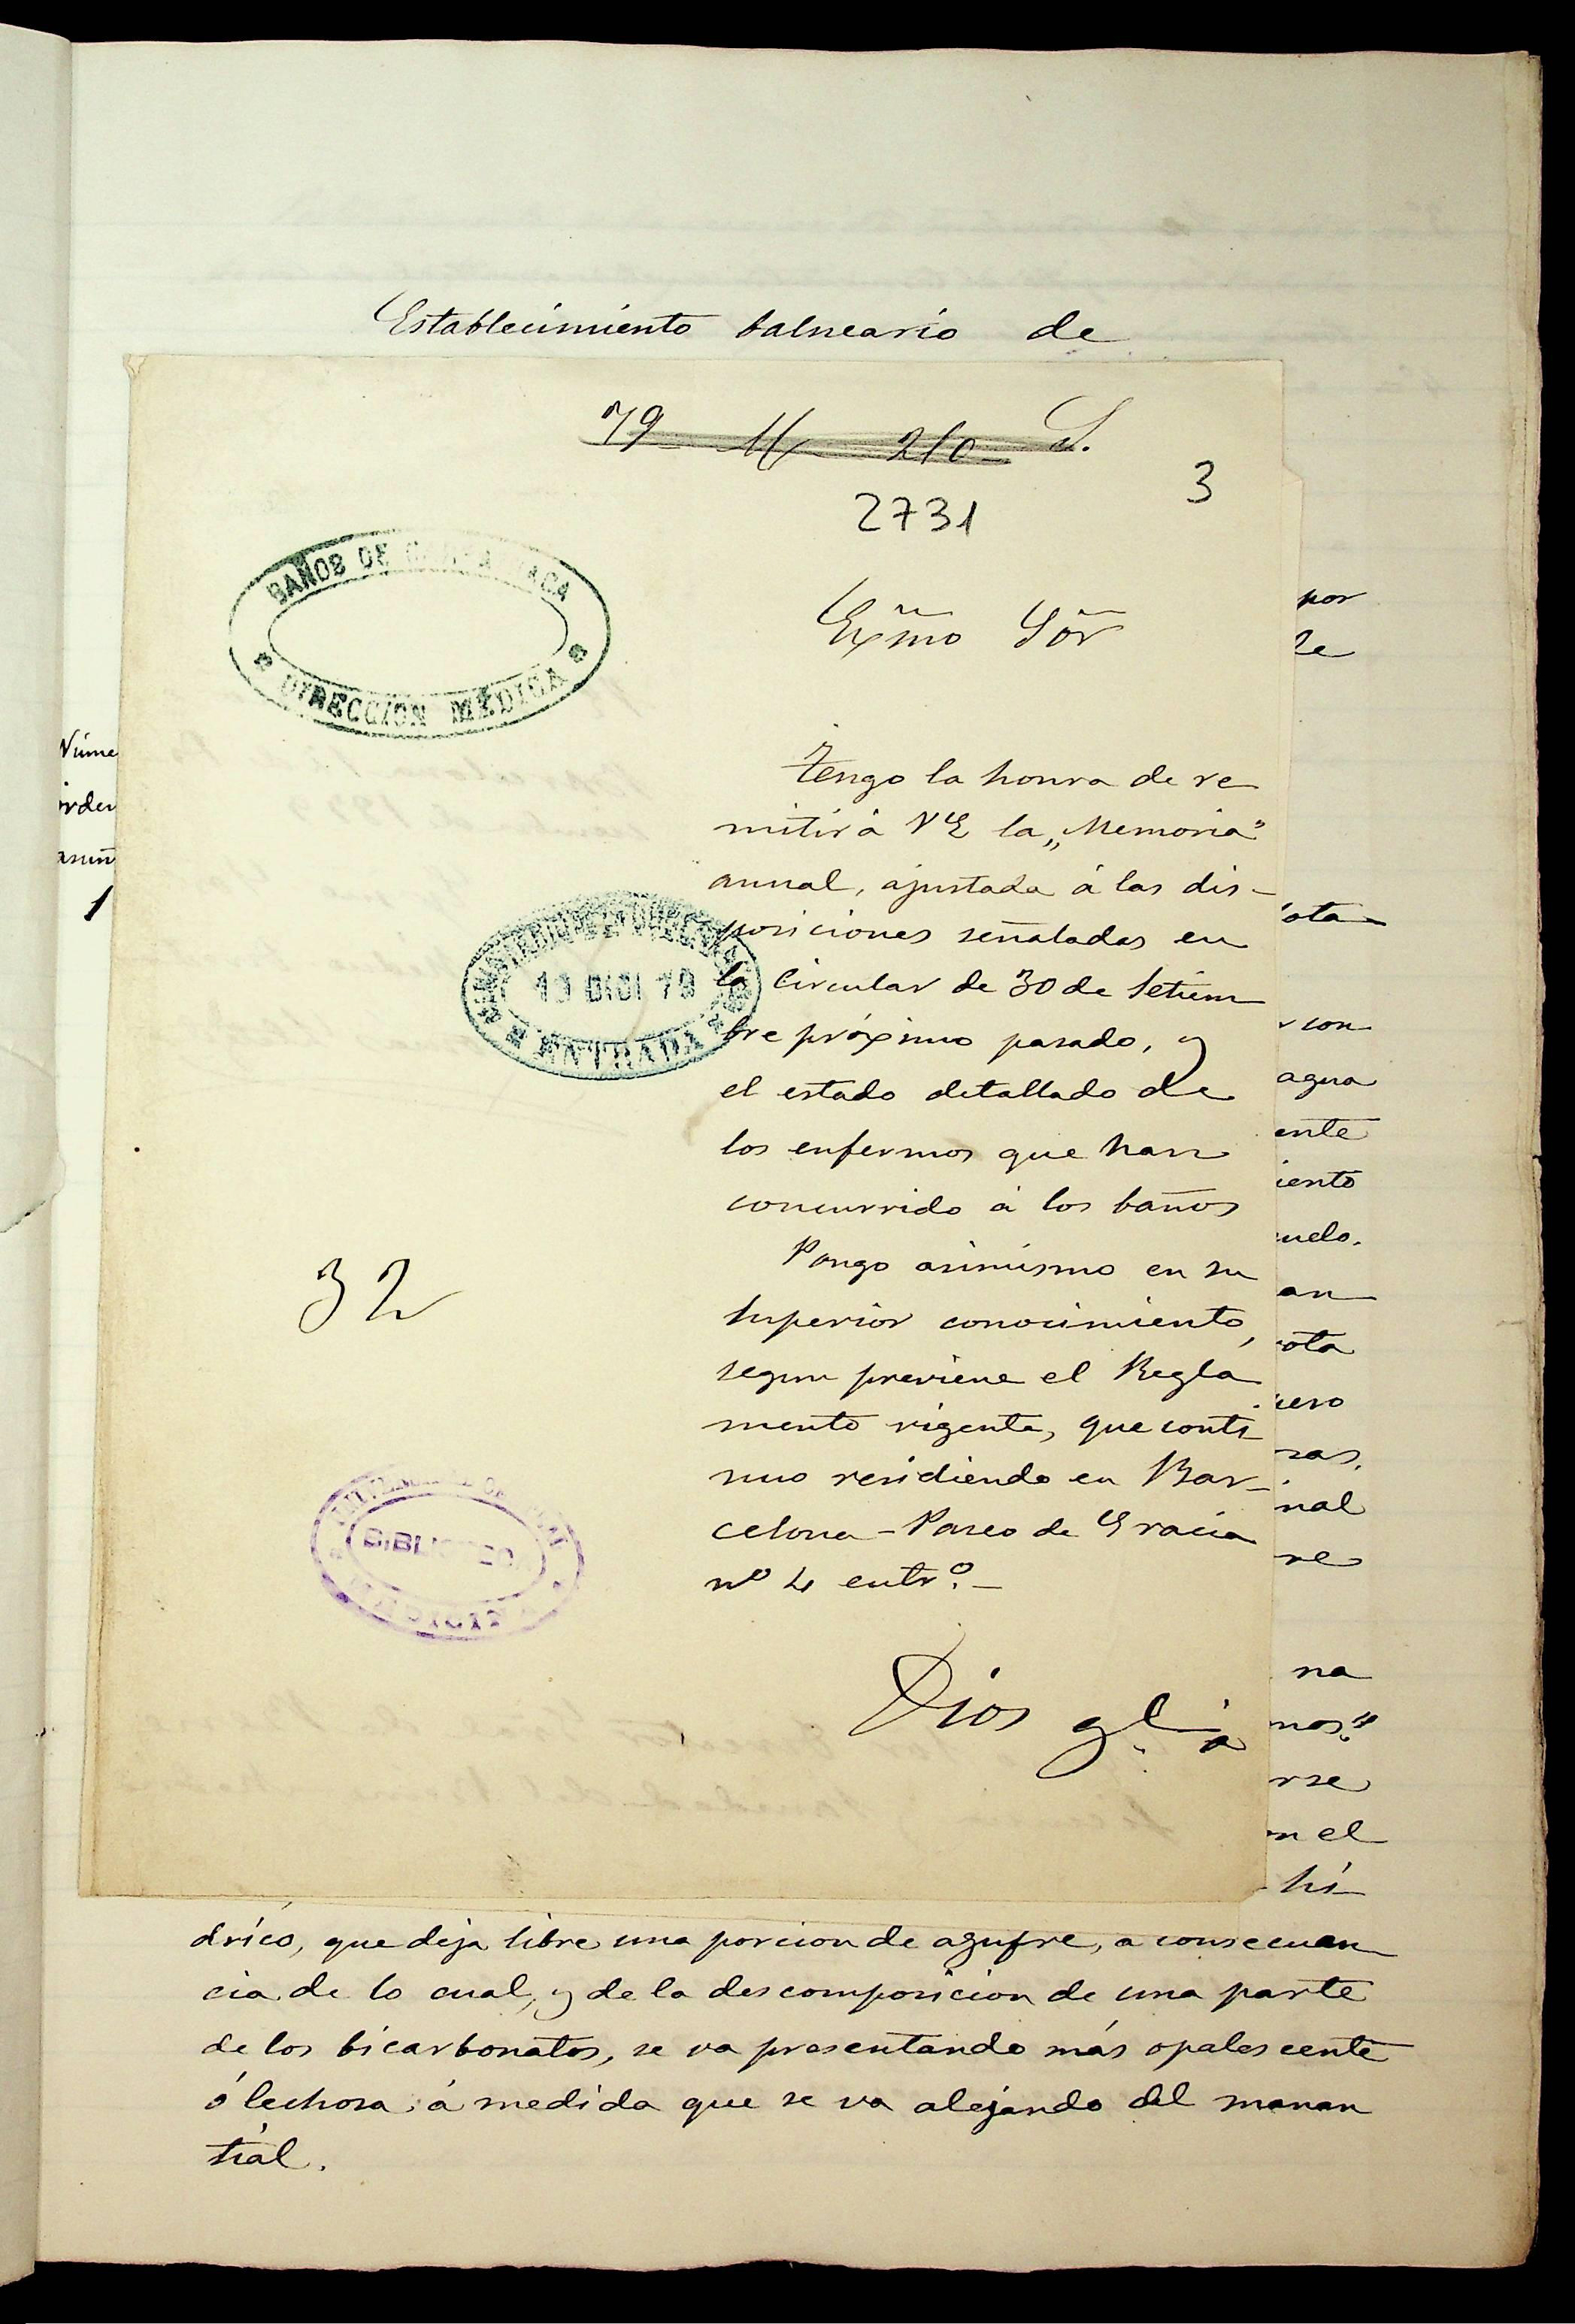 Establecimiento balneario de
79 210 S.
3
2731
BAÑOS DE
DIRECCION MÉDICA
Exm̃o Sõr
Tengo la honra de re
mitir á VE la „Memoria"
anual, ajustada á las dis-
posiciones señaladas en
la Circular de 30 de Setiem
bre próximo pasado, y
el estado detallado de
los enfermos que han
concurrido á los baños
Pongo asimismo en su
superior conocimiento,
segun previene el Regla
mento vigente, que conti
nuo residiendo en Bar-
celona - Paseo de Gracia
nº 4 entrº. -
Dios
DICI 79
ENTRADA
32
BIBLIOTECA
MEDICINA
Núme
orden
1
por
de
ota
con
agua
ente
iento
uelo.
an
ota
ero
sas.
nal
re
na
nos."
rse
n el
hi
drico, que deja libre una porcion de azufre, a consecuen
cia de lo cual, y de la descomposicion de una parte
de los bicarbonatos, se va presentando más opalescente
ó lechosa, á medida que se va alejando del manan
tial.